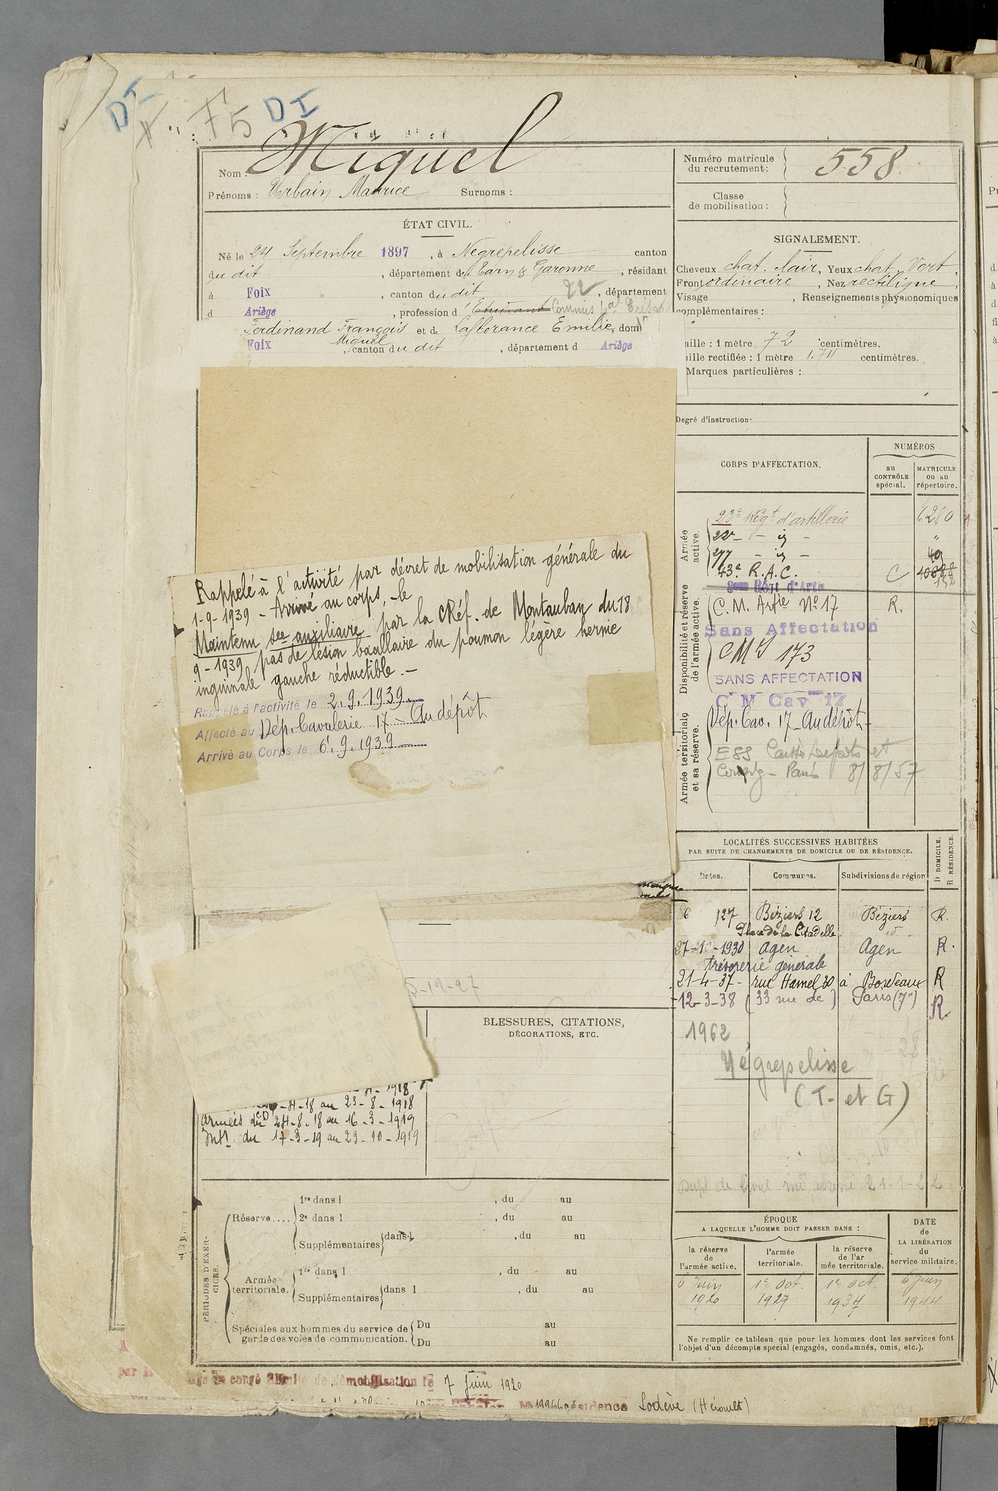 DI
F5 DI
Nom Miquel
Prénoms : Urbain Maurice Surnoms :
ÉTAT CIVIL.
Né le 24 Septembre 1897, à Négrepelisse canton
du dit, département de Tarn & Garonne, résidant
à Foix, canton du dit 22, département
d Ariège, profession d'Etudiant Commis
Ferdinand François et de Laflorance Emilie, dom
Miquel
Foix, canton du dit, département d Ariège
Numéro matricule du recrutement : 558
Classe de mobilisation :
SIGNALEMENT.
Cheveux chat. clair, Yeux chat. Vert,
Front ordinaire, Nez rectiligne,
Visage , Renseignements physionomiques
complémentaires :
aille : 1 mètre 72 centimètres.
ille rectifiée : 1 mètre 1.74 centimètres.
Marques particulières :
Degré d'instruction :
CORPS D'AFFECTATION.
NUMÉROS
au CONTRÔLE spécial.
MATRICULE ou au répertoire.
Armée active.
23e Régt d'artillerie 6280
22e - id - "
277 - id - 49
43e R.A.C. C
Disponibilité et réserve de l'armée active.
C. M. Artie No 17 R.
Sans Affectation
CMI 173
SANS AFFECTATION
C M Cav 17
Armée territoriale et sa réserve.
Dép. Cav. 17 Au dépôt
Paris 8/8/57
Rappelé à l'activité par décret de mobilisation générale du
1-9-1939 - Arrivé au corps, le
Maintenu ser auxiliaire par la CRéf. de Montauban du 18
9-1939, pas de lésion bacillaire du poumon légère hernie
inguinale gauche réductible. -
Rappelé à l'activité le 2.9.1939
Affecté au Dép. Cavalerie 17 - Au dépôt
Arrivé au Corps le 6.9.1939
LOCALITÉS SUCCESSIVES HABITÉES
PAR SUITE DE CHANGEMENTS DE DOMICILE OU DE RÉSIDENCE.
Dates. Communes. Subdivisions de région D DOMICILE. R RÉSIDENCE.
127 Béziers 12 Béziers R.
Place de la Citadelle
1930 Agen Agen R.
trésorerie générale
21-4-37- rue Hamel 30 à Bordeaux R
12-3-38 (33 rue de ) Paris (7e) R.
1962
Négrepelisse
(T. et G)
BLESSURES, CITATIONS,
DÉCORATIONS, ETC.
-1918
-4-18 au 23-8-1918
armées du 24-8-18 au 16-3-1919
Intr du 17-3-19 au 23-10-1919
PÉRIODES D'EXERCICES.
Réserve....
1re dans l , du au
2e dans l , du au
Supplémentaires dans l , du au
Armée territoriale.
1re dans l , du au
Supplémentaires dans l , du au
Spéciales aux hommes du service de garde des voies de communication.
Du au
Du au
ÉPOQUE
A LAQUELLE L'HOMME DOIT PASSER DANS :
la réserve de l'armée active.
l'armée territoriale.
la réserve de l'armée territoriale.
DATE de LA LIBÉRATION du service militaire.
6 Juin 1920
1er Oct. 1927
1er Oct. 1934
6 Juin 1944
Ne remplir ce tableau que pour les hommes dont les services font
l'objet d'un décompte special (engagés, condamnés, omis, etc.).
congé illimité de démobilisation le 7 Juin 1920
résidence Lodève (Hérault)